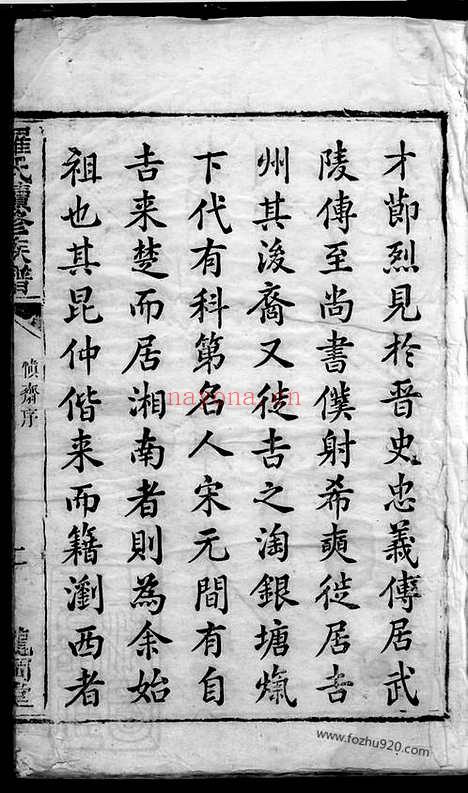 才節烈見於晉史忠義傳居武
陵傳至尚書僕射希奭徙居吉
州其後裔又徙吉之淘銀塘爌
下代有科第名人宋元間有自
吉来楚而居湘南者則為余始
祖也其昆仲偕来而籍瀏西者
羅氏續修族譜
慎齋序
二
nayona.cn
www.fozhu920.com